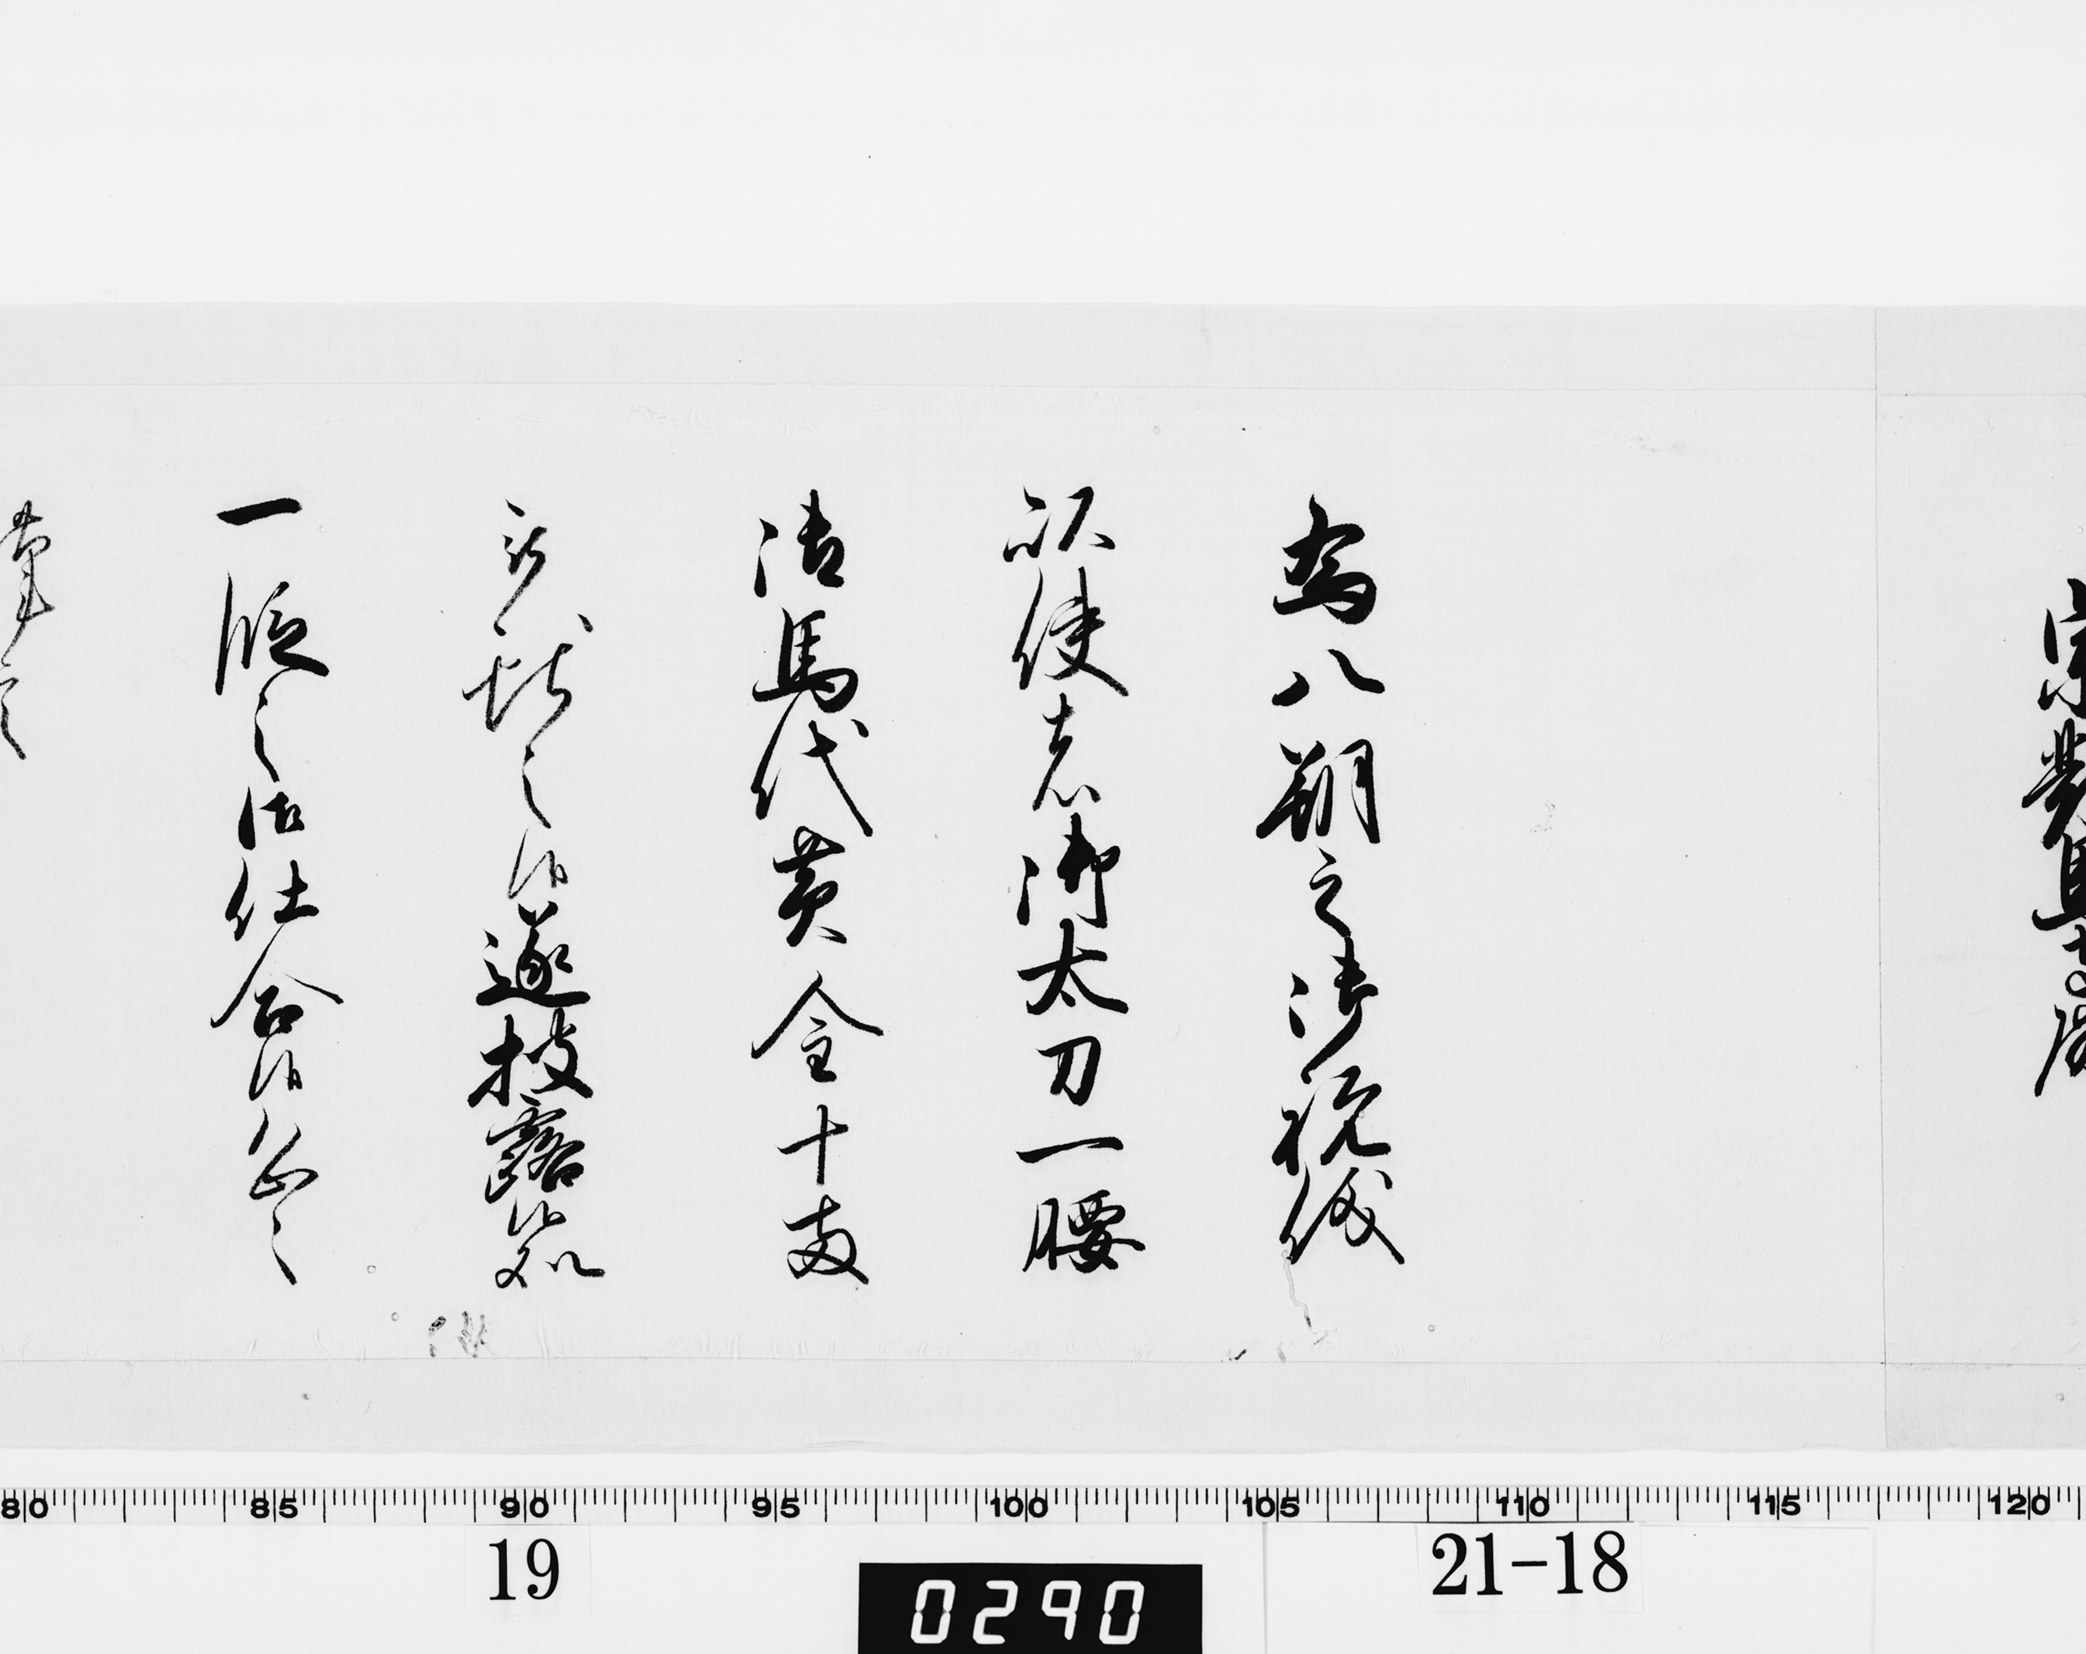 宗對馬守殿
為八朔之御祝儀
以使者御太刀一腰
御馬代黄金十両
被献之候遂披露候処
一段之御仕合候恐々
謹言
80 85 90 95 100 105 110 115 120
19
21-18
0290